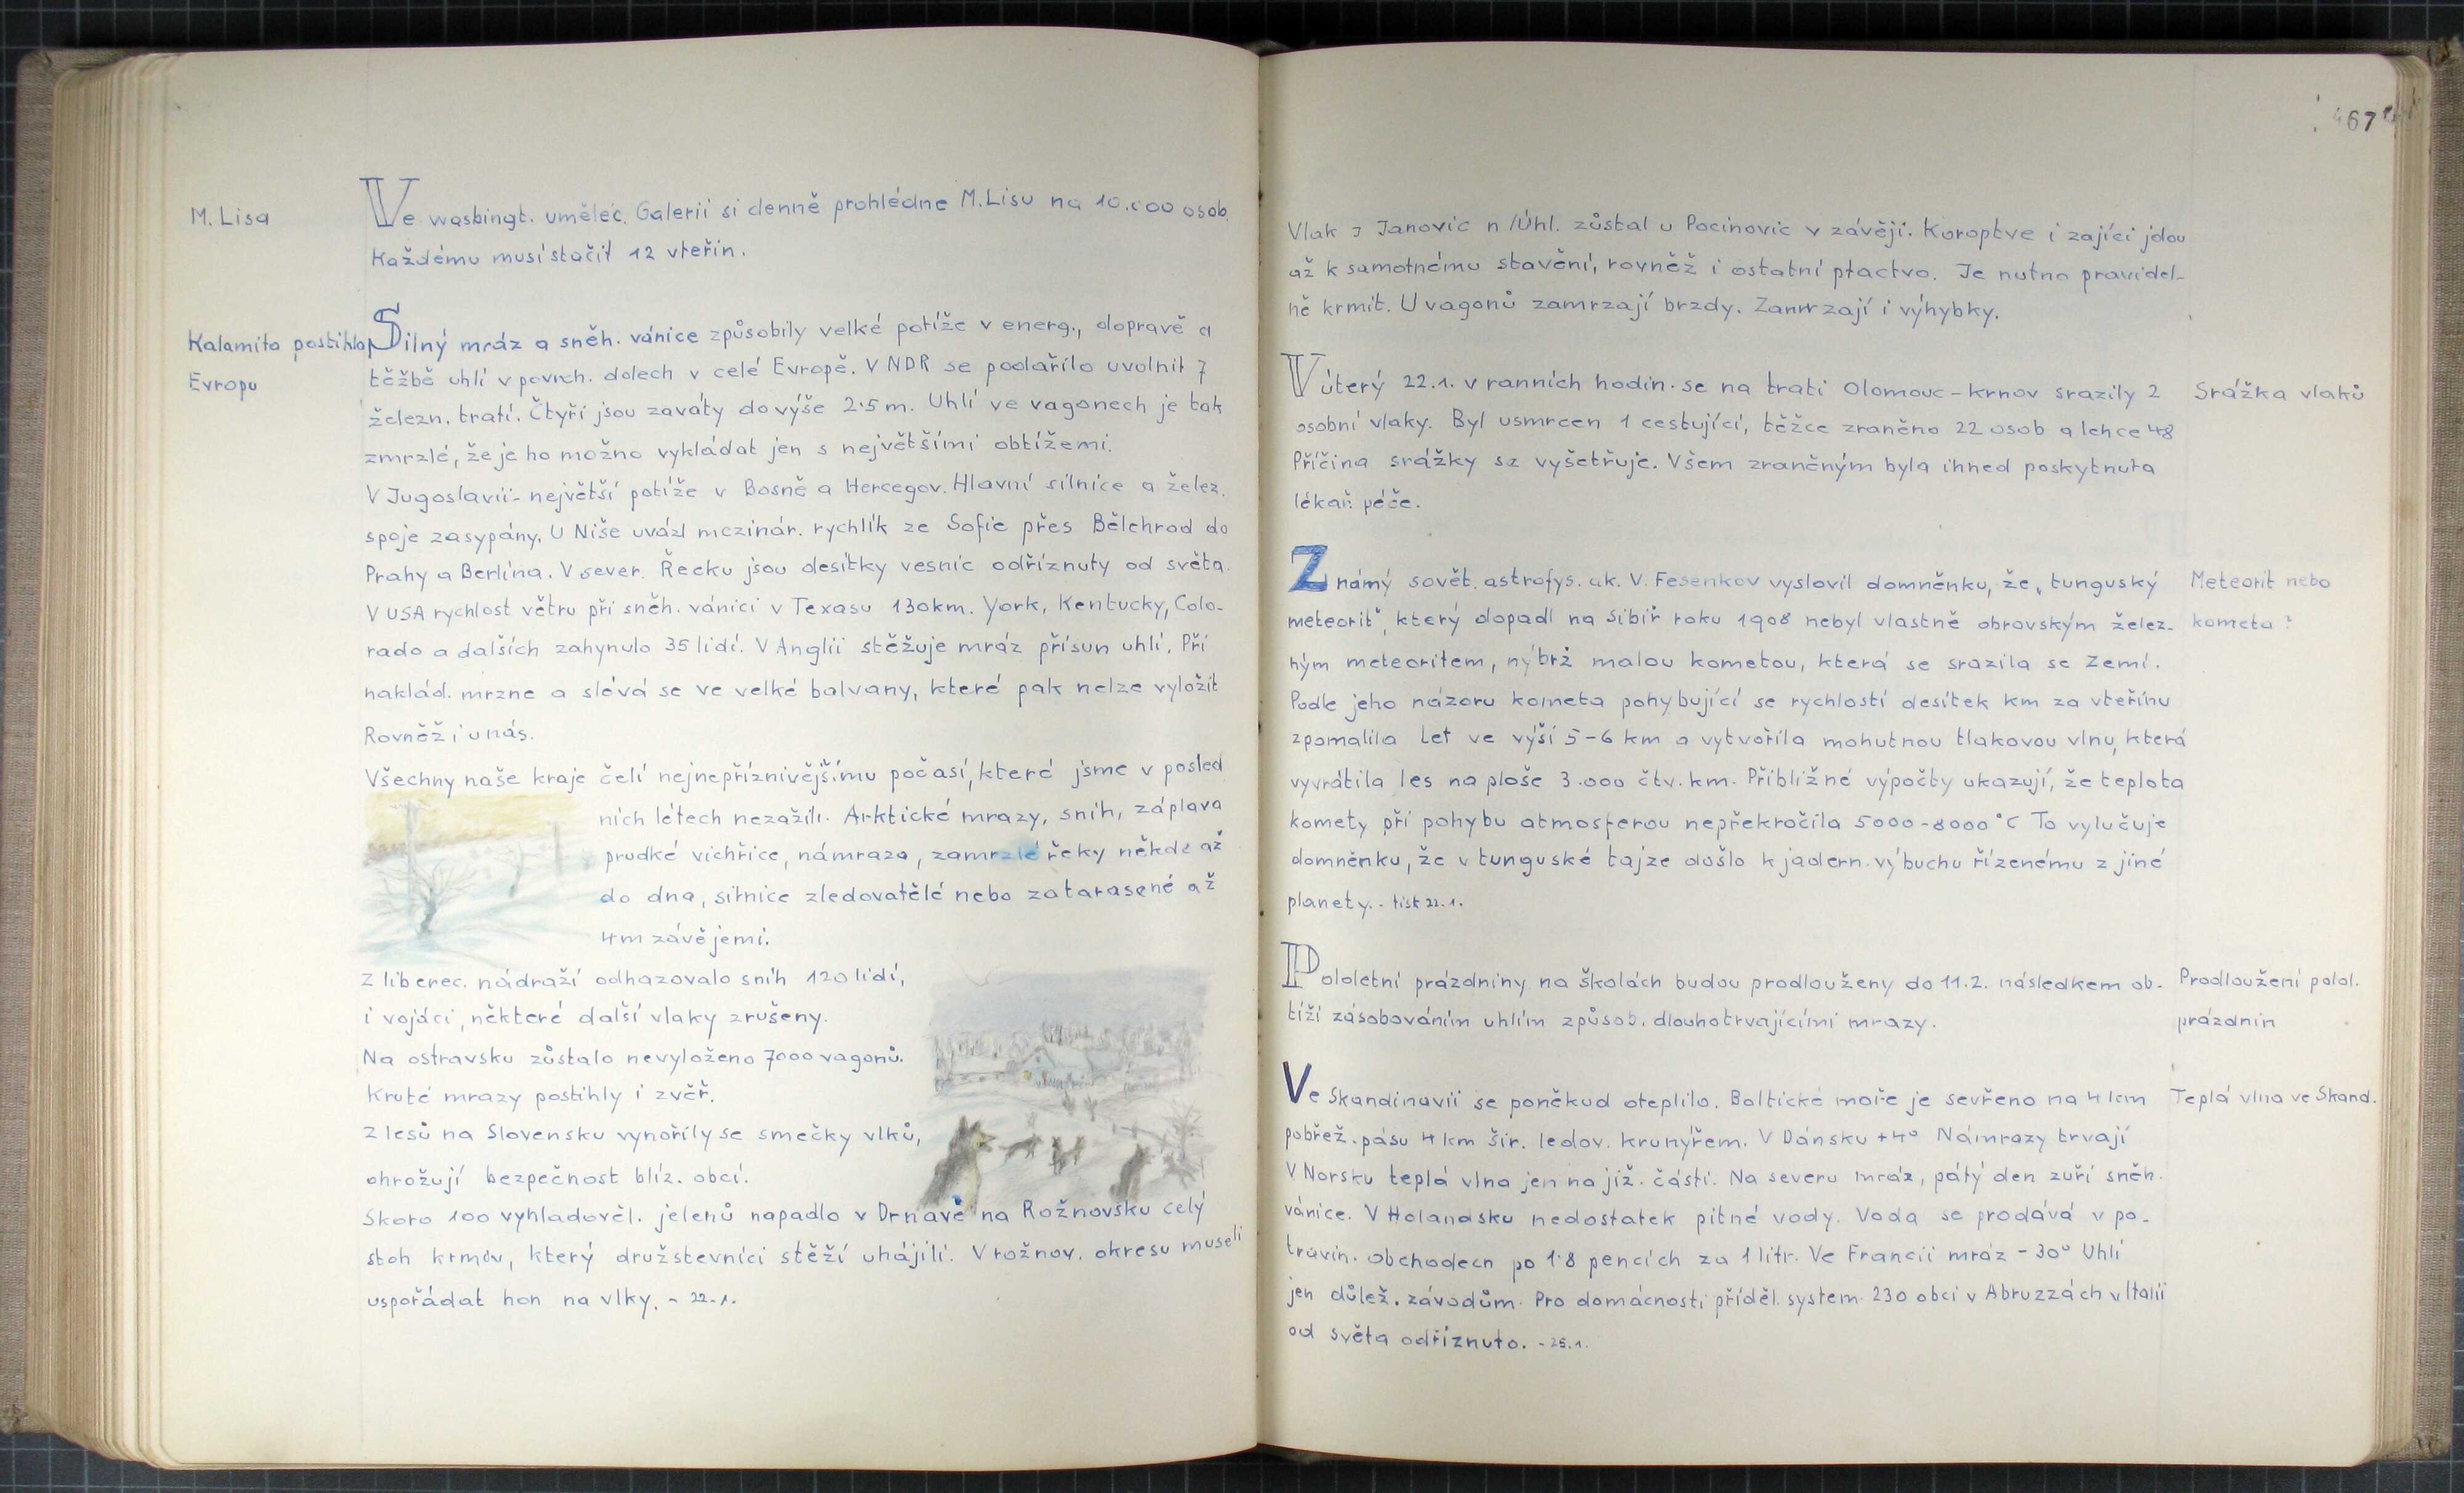 M. Lisa
Ve washingt. uměléc. Galerii si denně prohlédne M. Lisu na 10.000 osob.
Každému musí stačit 12 vteřin.
Kalamita postihla
Evropu
Silný mráz a sněh. vánice způsobily velké potíže v energ., dopravě a
těžbě uhlí v povrch. dolech v celé Evropě. V NDR se podařilo uvolnit 7
železn. tratí. Čtyři jsou zaváty do výše 2.5 m. Uhlí ve vagonech je tak
zmrzlé, že je ho možno vykládat jen s největšími obtížemi.
V Jugoslavii - největší potíže v Bosně a Hercegov. Hlavní silnice a želez.
spoje zasypány. U Niše uvázl mezinár. rychlík ze Sofie přes Bělehrad do
Prahy a Berlína. V sever. Řecku jsou desítky vesnic odříznuty od světa.
V USA rychlost větru při sněh. vánici v Texasu 130km. York, Kentucky, Colo-
rado a dalších zahynulo 35 lidí. V Anglii stěžuje mráz přísun uhlí. Při
naklád. mrzne a slévá se ve velké balvany, které pak nelze vyložit
Rovněž i u nás.
Všechny naše kraje čelí nejnepříznivějšímu počasí, které jsme v posled
ních létech nezažili. Arktické mrazy, sníh, záplava
prudké vichřice, námraza, zamrzlé řeky někde až
do dna, silnice zledovatělé nebo zatarasené až
4m závějemi.
Z liberec. nádraží odhazovalo sníh 120 lidí,
i vojáci, některé další vlaky zrušeny.
Na ostravsku zůstalo nevyloženo 7000 vagonů.
Kruté mrazy postihly i zvěř.
Z lesů na Slovensku vynořily se smečky vlků,
ohrožují bezpečnost blíz. obcí.
Skoro 100 vyhladověl. jelenů napadlo v Drnavě na Rožnovsku celý
stoh krmiv, který družstevníci stěží uhájili. V rožnov. okresu museli
uspořádat hon na vlky. - 22.1.
467
Vlak z Janovic n/Úhl. zůstal u Pocinovic v závěji. Koroptve i zajíci jdou
až k samotnému stavění, rovněž i ostatní ptactvo. Je nutno pravidel-
ně krmit. U vagonů zamrzají brzdy. Zamrzají i výhybky.
V úterý 22.1. v ranních hodin. se na trati Olomouc - Krnov srazily 2
osobní vlaky. Byl usmrcen 1 cestující, těžce zraněno 22 osob a lehce 48
Příčina srážky se vyšetřuje. Všem zraněným byla ihned poskytnuta
lékař. péče.
Srážka vlaků
Známý sovět. astrofys. ak. V. Fesenkov vyslovil domněnku, že „tunguský
meteorit", který dopadl na Sibiř roku 1908 nebyl vlastně obrovským želez-
ným meteoritem, nýbrž malou kometou, která se srazila se Zemí.
Podle jeho názoru kometa pohybující se rychlostí desítek km za vteřinu
zpomalila let ve výši 5-6 km a vytvořila mohutnou tlakovou vlnu, která
vyvrátila les na ploše 3.000 čtv. km. Přibližné výpočty ukazují, že teplota
komety při pohybu atmosferou nepřekročila 5000-8000°C To vylučuje
domněnku, že v tunguské tajze došlo k jadern. výbuchu řízenému z jiné
planety. - tisk 22.1.
Meteorit nebo
kometa?
Pololetní prázdniny na školách budou prodlouženy do 11.2. následkem ob-
tíží zásobováním uhlím způsob. dlouhotrvajícími mrazy.
Prodloužení polol.
prázdnin
Ve Skandinavii se poněkud oteplilo. Baltické moře je sevřeno na 4 km
pobřež. pásu 4 km šir. ledov. krunýřem. V Dánsku +4° Námrazy trvají
V Norsku teplá vlna jen na již. části. Na severu mráz, pátý den zuří sněh.
vánice. V Holandsku nedostatek pitné vody. Voda se prodává v po-
travin. obchodech po 1.8 pencích za 1 litr. Ve Francii mráz - 30° Uhlí
jen důlež. závodům. Pro domácnosti příděl. system. 230 obcí v Abruzzách v Italii
od světa odříznuto. - 25.1.
Teplá vlna ve Skand.